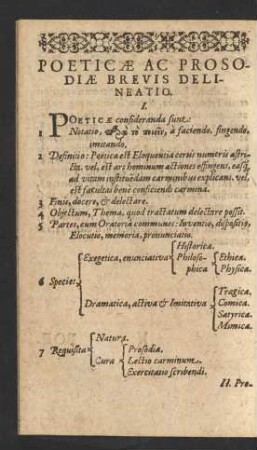 POETICÆ AC PROSO-
DIÆ BREVIS DELI-
NEATIO.
I.
POETICÆ consideranda sunt:
1 Notatio, ποιεῖν, à faciendo, fingendo,
imitando.
2 Definitio: Poetica est Eloquentia certis numeris astri-
cta. vel, est ars hominum actiones effingens, easq;
ad vitam instituendam carminibus explicans. vel,
est facultas benè conficiendi carmina.
3 Finis, docere, & delectare.
4 Objectum, Thema, quod tractatum delectare possit.
5 Partes, cum Oratoria communes: Inventio, dispositio,
Elocutio, memoria, pronunciatio.
6 Species
Exegetica, enunciativa
Historica.
Philoso-
phica
Ethica.
Physica.
Dramatica, activa & Imitativa
Tragica.
Comica.
Satyrica.
Mimica.
7 Requisita
Natura.
Cura
Prosodiæ.
Lectio carminum.
Exercitatio scribendi.
II. Pro-